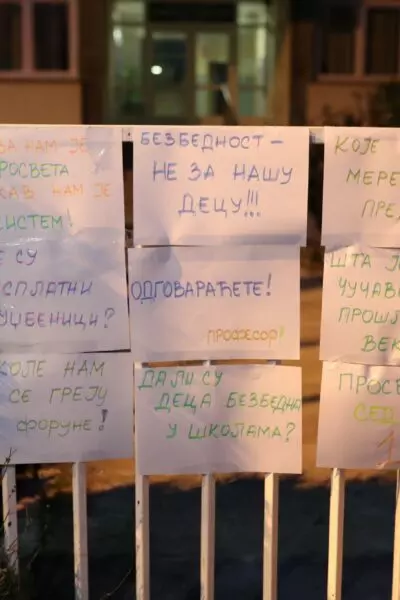 ЗА НАМ ЈЕ
РОСВЕТА
КАВ НАМ ЈЕ
СИСТЕМ!
БЕЗБЕДНОСТ –
НЕ ЗА НАШУ
ДЕЦУ!!!
КОЈЕ
МЕРЕ
ПРЕД
Е СУ
СПЛАТНИ
УЏБЕНИЦИ?
ОДГОВАРАЋЕТЕ!
ПРОФЕСОР!
ШТА ЈЕ
ЧУЧАВ
ПРОШЛ
ВЕК
КОЛЕ НАМ
СЕ ГРЕЈУ
ФОРУНЕ!
ДА ЛИ СУ
ДЕЦА БЕЗБЕДНА
У ШКОЛАМА?
ПРОСВЕ
СЕД